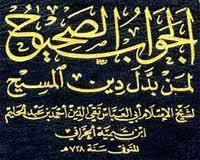 الجواب الصحيح
لمن بدل دين المسيح
لشيخ الإسلام أبي العباس تقي الدين أحمد بن عبد الحليم
ابن تيمية الحراني
المتوفى سنة ٧٢٨هـ